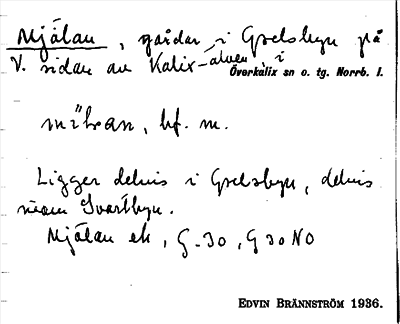 Mjälan, gårdar i Grelsbyn på
V. sidan av Kalix-älven i
Överkalix sn o. tg. Norrb. l.
bf. m.
Ligger delvis i Grelsbyn, delvis
inom Svartbyn.
Mjälan ek, G-30, G 30 NO
EDVIN BRÄNNSTRÖM 1936.